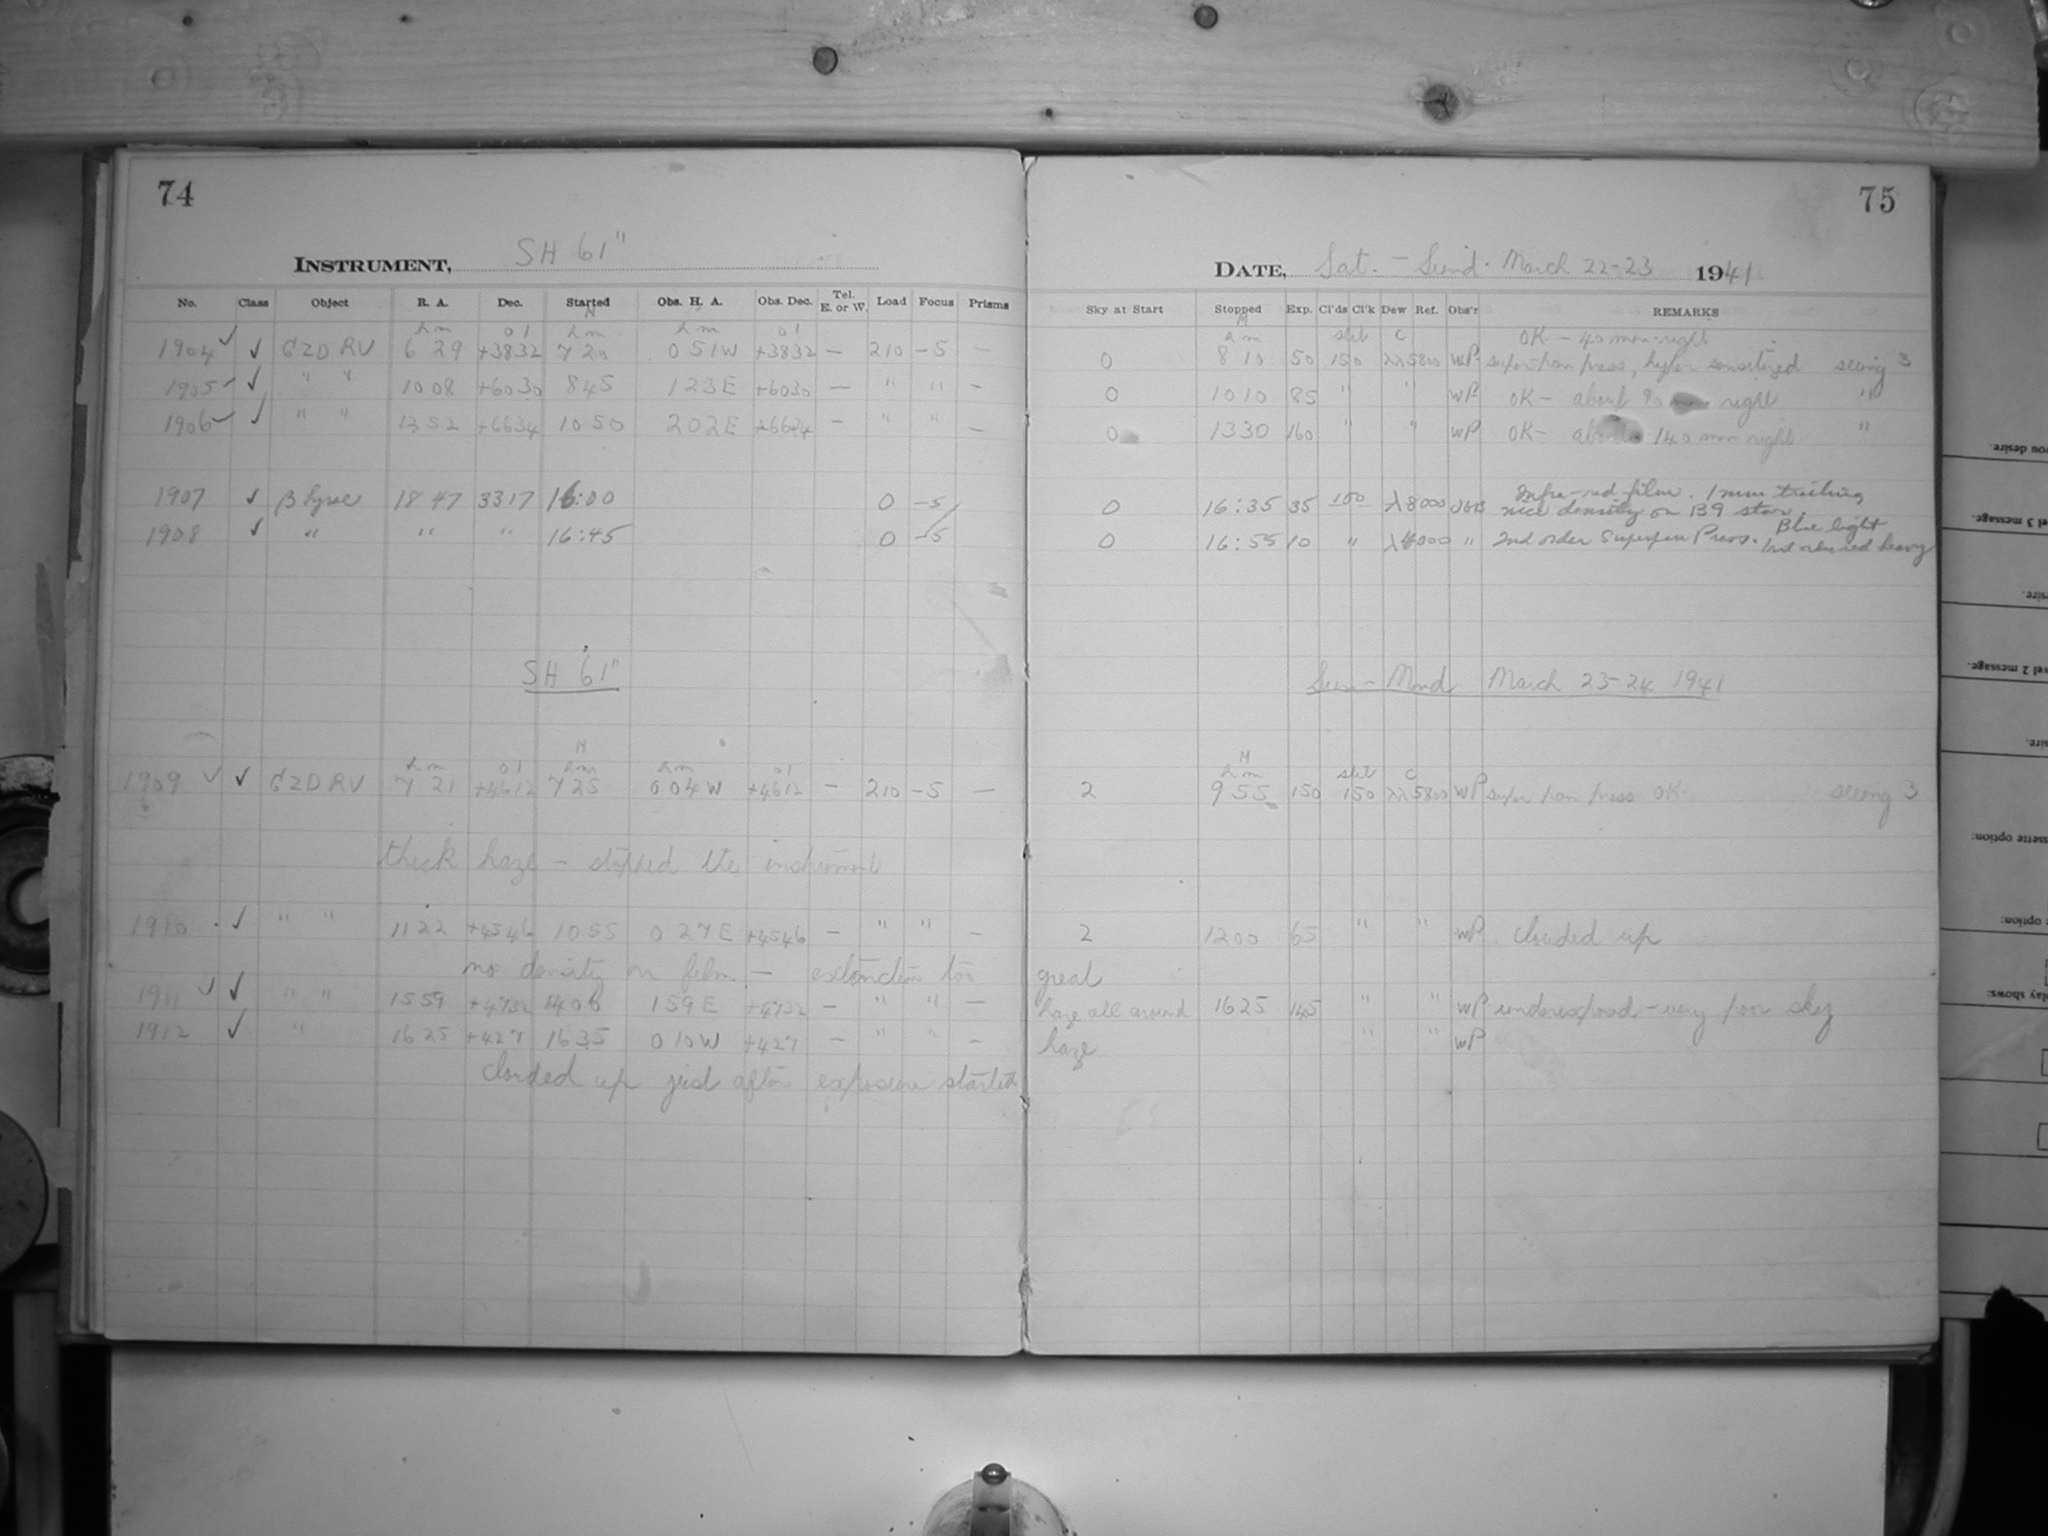 74
INSTRUMENT, SH 61"
No. Class Object R. A. Dec. Started Obs. H. A. Obs. Dec. Tel. E. or W. Load Focus Prisms
h m o ' h m h m o '
1904 ✓ ✓ GZD RV 6 29 +3832 7 20 0 51W +3832 — 210 -5 —
1905 ✓ ✓ " " 10 08 +6030 8 45 1 23E +6030 — " " —
1906 ✓ ✓ " " +6634 10 50 2 02E +6634 — " " —
1907 ✓ β Lyrae 18 47 33 17 16:00 0 -5
1908 ✓ " " " 16:45 0 -5
SH 61"
H
h m o ' h m h m o '
1909 ✓ ✓ GZD RV 7 21 +4612 7 25 0 04W +4612 — 210 -5 —
thick haze — stopped the instrument
1910 ✓ " " 11 22 +4546 10 55 0 27E +4546 — " " —
no density on film — extinction too
1911 ✓ ✓ " " 15 59 +4732 1 59E +4732 — " " —
1912 ✓ " 16 25 +427 16 35 0 10W +427 — " " —
clouded up just after exposure started
75
DATE, Sat. — Sund. March 22-23 1941
Sky at Start Stopped Exp. Cl'ds Cl'k Dew Ref. Obs'r REMARKS
H
h m slit C OK — 40 mm right
0 8 10 50 150 λλ 5800 WP super pan press, hyper sensitized seeing 3
0 10 10 85 " " WP OK — about 90 right "
0 13 30 160 " " WP OK — about 140 mm right "
Infra-red film. 1 mm
0 16:35 35 150 λ8000 nice density on B9 star.
Blue light
0 16:55 10 " " 2nd order Superpan Press. 1st order red heavy
Sun — Mond March 23-24 1941
H
h m slit C
2 9 55 150 150 λλ 5800 WP super pan press OK seeing 3
2 12 00 65 " " WP clouded up
great
haze all around 16 25 145 " " WP underexposed — very poor sky
haze " " WP
you desire.
vel 3 message.
sire.
vel 2 message.
sire.
ssette option:
option:
play shows: